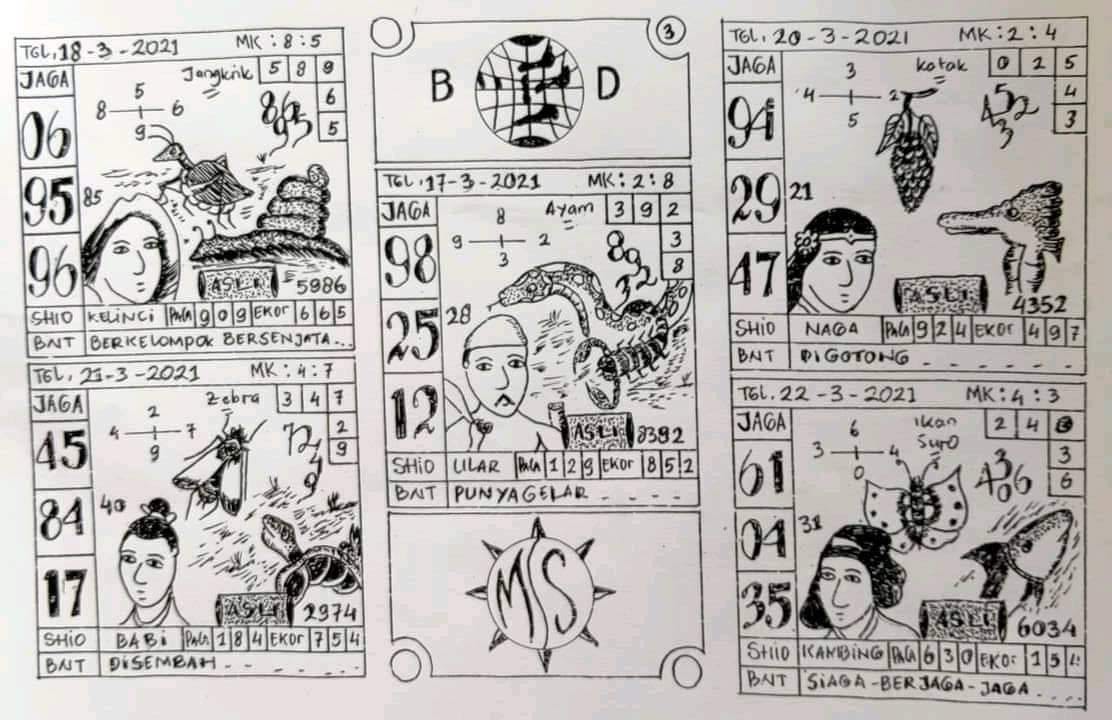 TGL. 18-3-2021 MK: 8:5
JAGA Jangkrik 5 8 9
5 6
8 6 5
9
06
95
85
96
ASLI 5986
SHIO KELINCI PALA 9 0 9 EKOR 6 6 5
BNT BERKELOMPOK BERSENJATA...
TGL. 21-3-2021 MK: 4:7
JAGA Zebra 3 4 7
2 2
4 7 9
9
45
84
40
17
ASLI 2974
SHIO BABI PALA 1 8 4 EKOR 7 5 4
BNT DISEMBAH - - . . . .
3
B D
TGL. 17-3-2021 MK: 2:8
JAGA Ayam 3 9 2
8 3
9 2 8
3
98
25
28
12
ASLI 8392
SHIO ULAR PALA 1 2 9 EKOR 8 5 2
BNT PUNYA GELAR - - - -
MS
TGL. 20-3-2021 MK: 2:4
JAGA Katak 0 2 5
3 4
4 2 3
5
94
29
21
47
ASLI 4352
SHIO NAGA PALA 9 2 4 EKOR 4 9 7
BNT DIGOTONG - - - - -
TGL. 22-3-2021 MK: 4:3
JAGA Ikan Suro 2 4
6 3
3 4 6
0
61
04
31
35
ASLI 6034
SHIO KAMBING PALA 6 3 0 EKOR 1 5
BNT SIAGA-BERJAGA-JAGA....